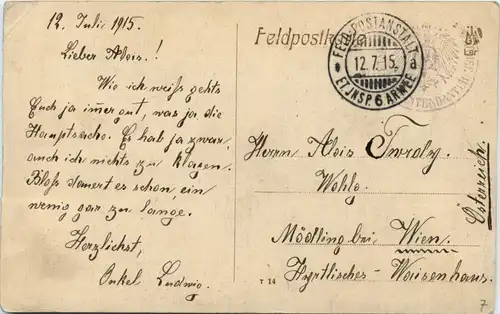 12. Juli 1915.
Lieber Alois!
Wie ich weiß gehts
Euch ja immer gut, was ja die
Hauptsache. Es hab ja zwar,
auch ich nichts zu klagen.
Bloß dauert es schon, ein
wenig gar zu lange.
Herzlichst,
Onkel Ludwig.
Feldpostkarte
FELDPOSTANSTALT
* a
12.7.15.
ET.INSP. 6 ARMEE
Herrn Alois
Wohlg.
Mödling bei Wien.
Hyrtlisches - Waisenhaus.
Österreich.
T 14
7